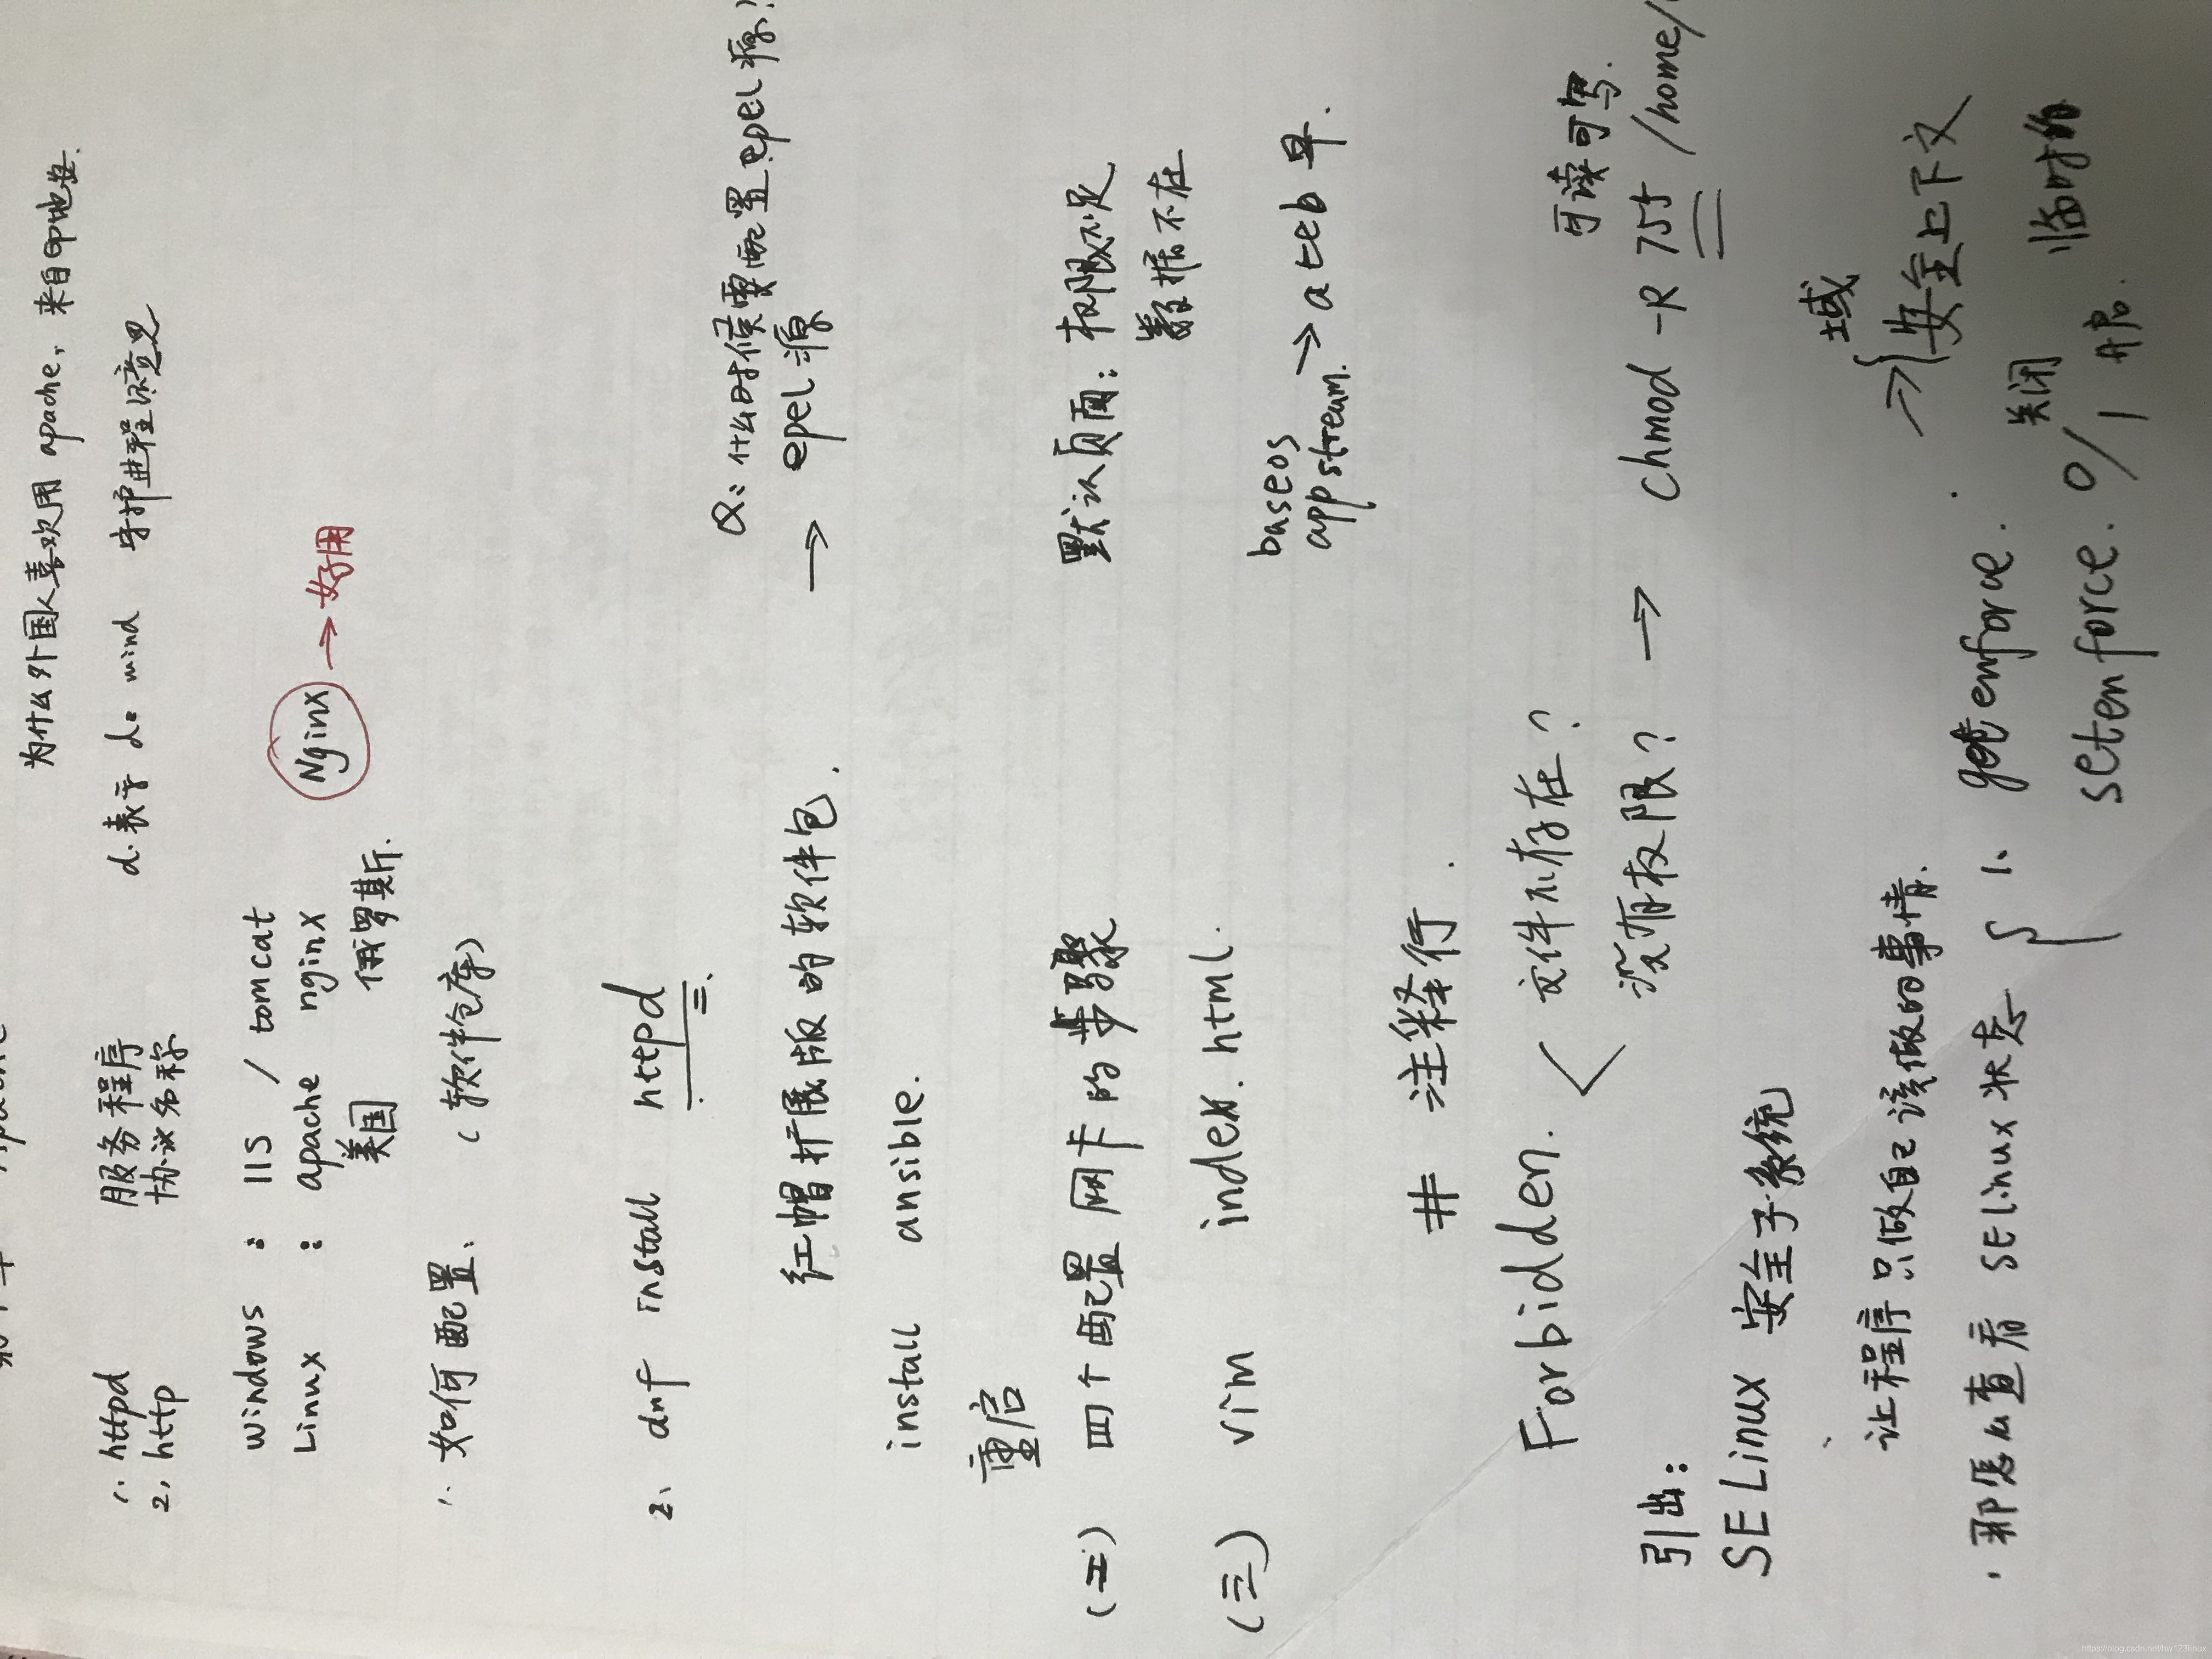 为什么外国人喜欢用 apache, 来自印地安.
1. httpd 服务程序 d.表示 de mind 守护进程的意思
2, http 协议名称
windows : IIS / tomcat
Linux : apache nginx Nginx → 好用
美国 俄罗斯.
1. 如何配置、 (软件仓库)
2、 dnf install httpd
Q: 什么时候需要配置epel源?
红帽扩展版的软件包. → epel 源
install ansible.
重启
(二) 四个配置网卡的步骤 默认页面: 权限不足
数据不在
(三) vim index.html.
baseos
appstream. → a 比 b 早.
# 注释行.
Forbidden. < 文件不存在? 可读可写.
没有权限? → chmod -R 755 /home/
引出:
SELinux 安全子系统 域
让程序只做自己该做的事情. → { 安全上下文
· 那怎么查看 SElinux 状态 { 1、 getenforce. 关闭 临时的
setenforce. 0/1 开启.
https://blog.csdn.net/hw123linux